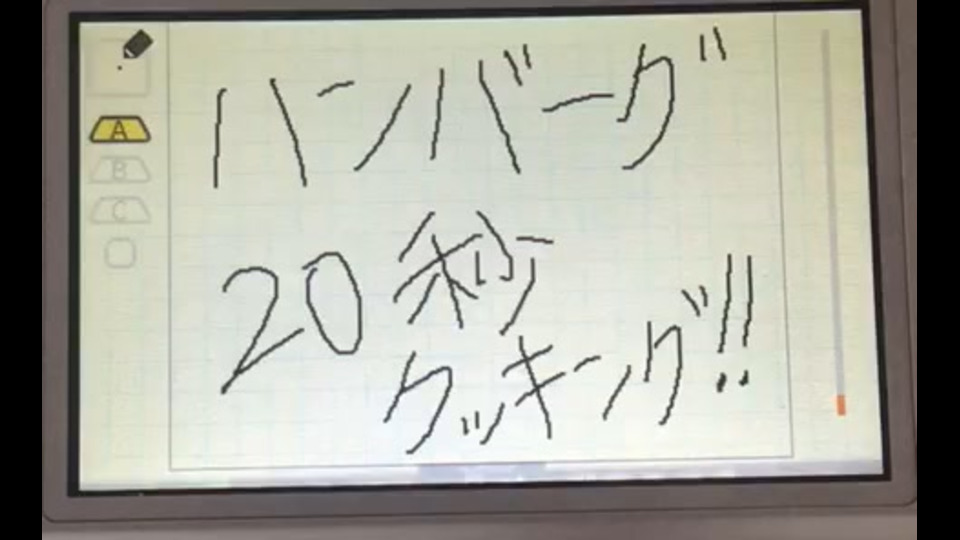 ハンバーグ
20秒
クッキング!!
A
B
C